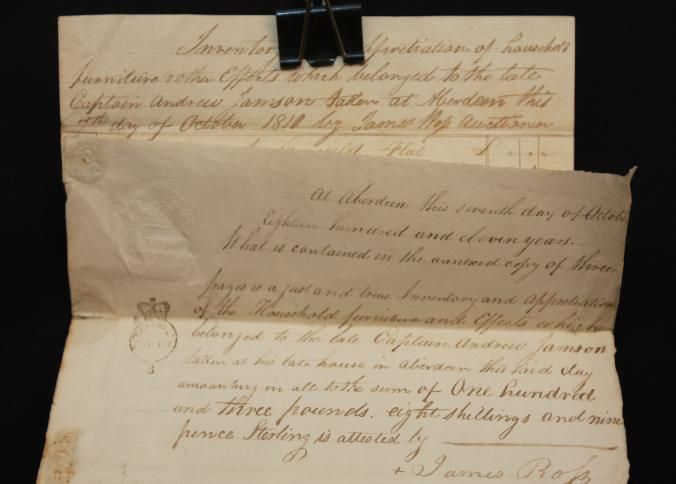 Inventory Appretiation of household
furniture & other Effects which belonged to the late
Captain Andrew Jamson taken at Aberdeen this
day of October 1811 by James Ross Auctioneer
Plat £
At Aberdeen this seventh day of Octobe
Eighteen hundred and eleven years.
What is contained in the annexed copy of three
pages is a just and true Inventory and Appretiation
of the Household furniture and Effects which
belonged to the late Captain Andrew Jamson
taken at his late house in Aberdeen this said day
amounting in all to the sum of One hundred
and three pounds. eight shillings and nine
pence Sterling is attested by
+ James Ross